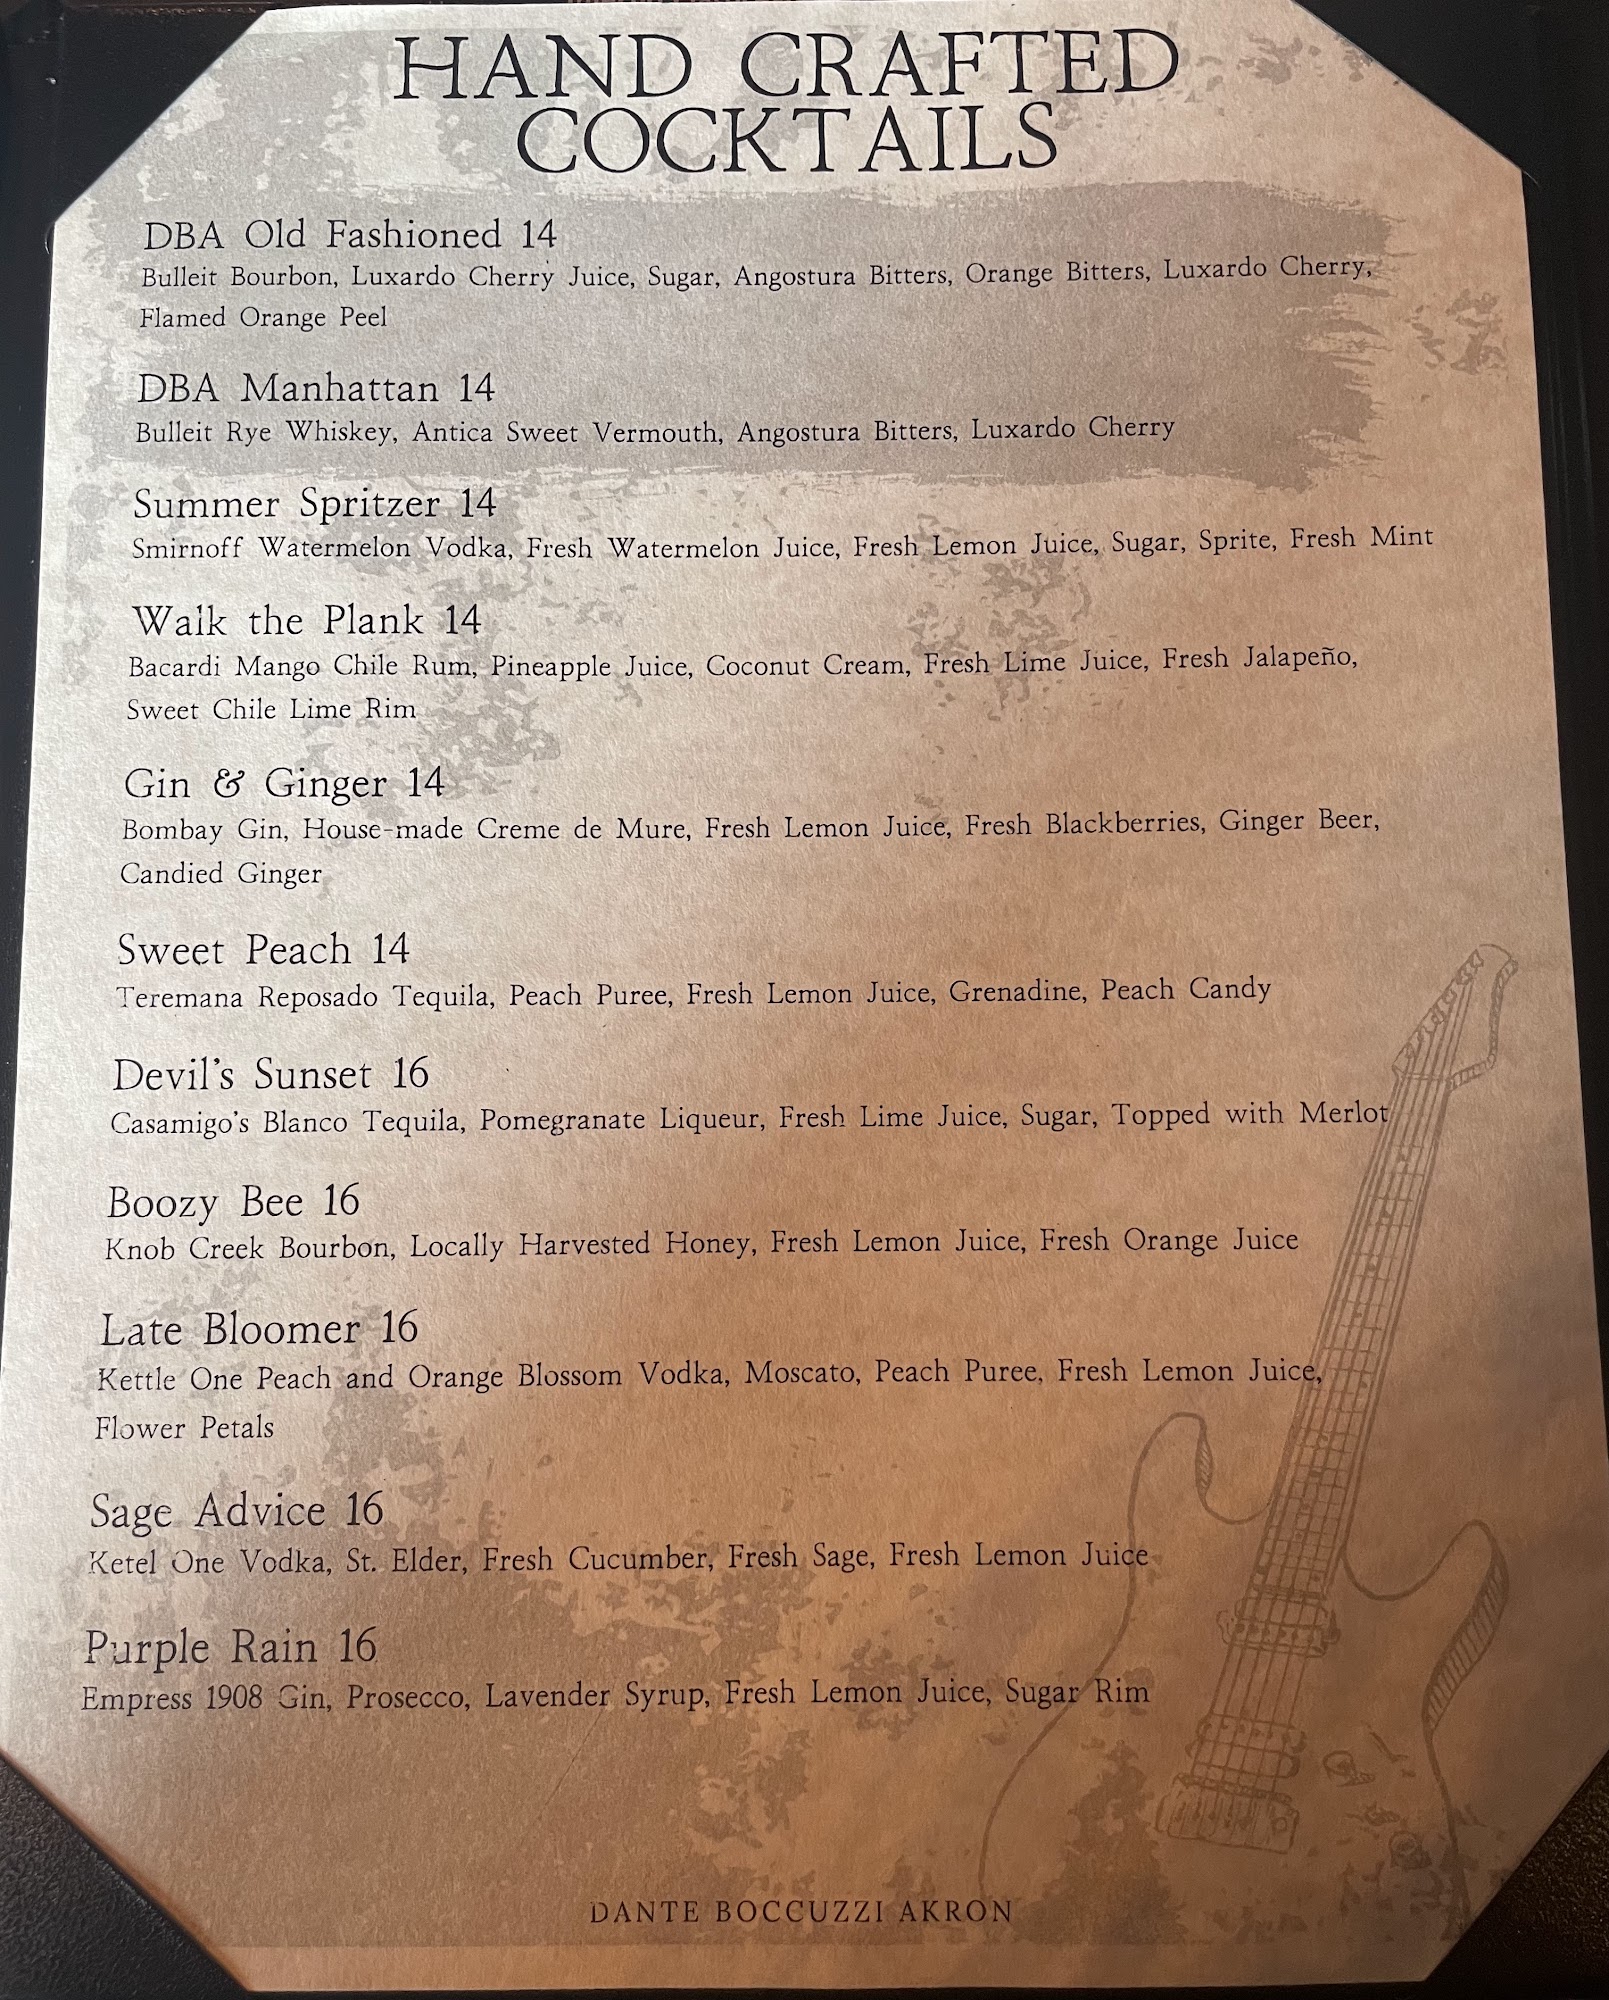 HAND CRAFTED
COCKTAILS
DBA Old Fashioned 14
Bulleit Bourbon, Luxardo Cherry Juice, Sugar, Angostura Bitters, Orange Bitters, Luxardo Cherry,
Flamed Orange Peel
DBA Manhattan 14
Bulleit Rye Whiskey, Antica Sweet Vermouth, Angostura Bitters, Luxardo Cherry
Summer Spritzer 14
Smirnoff Watermelon Vodka, Fresh Watermelon Juice, Fresh Lemon Juice, Sugar, Sprite, Fresh Mint
Walk the Plank 14
Bacardi Mango Chile Rum, Pineapple Juice, Coconut Cream, Fresh Lime Juice, Fresh Jalapeño,
Sweet Chile Lime Rim
Gin & Ginger 14
Bombay Gin, House-made Creme de Mure, Fresh Lemon Juice, Fresh Blackberries, Ginger Beer,
Candied Ginger
Sweet Peach 14
Teremana Reposado Tequila, Peach Puree, Fresh Lemon Juice, Grenadine, Peach Candy
Devil's Sunset 16
Casamigo's Blanco Tequila, Pomegranate Liqueur, Fresh Lime Juice, Sugar, Topped with Merlot
Boozy Bee 16
Knob Creek Bourbon, Locally Harvested Honey, Fresh Lemon Juice, Fresh Orange Juice
Late Bloomer 16
Kettle One Peach and Orange Blossom Vodka, Moscato, Peach Puree, Fresh Lemon Juice,
Flower Petals
Sage Advice 16
Ketel One Vodka, St. Elder, Fresh Cucumber, Fresh Sage, Fresh Lemon Juice
Purple Rain 16
Empress 1908 Gin, Prosecco, Lavender Syrup, Fresh Lemon Juice, Sugar Rim
DANTE BOCCUZZI AKRON